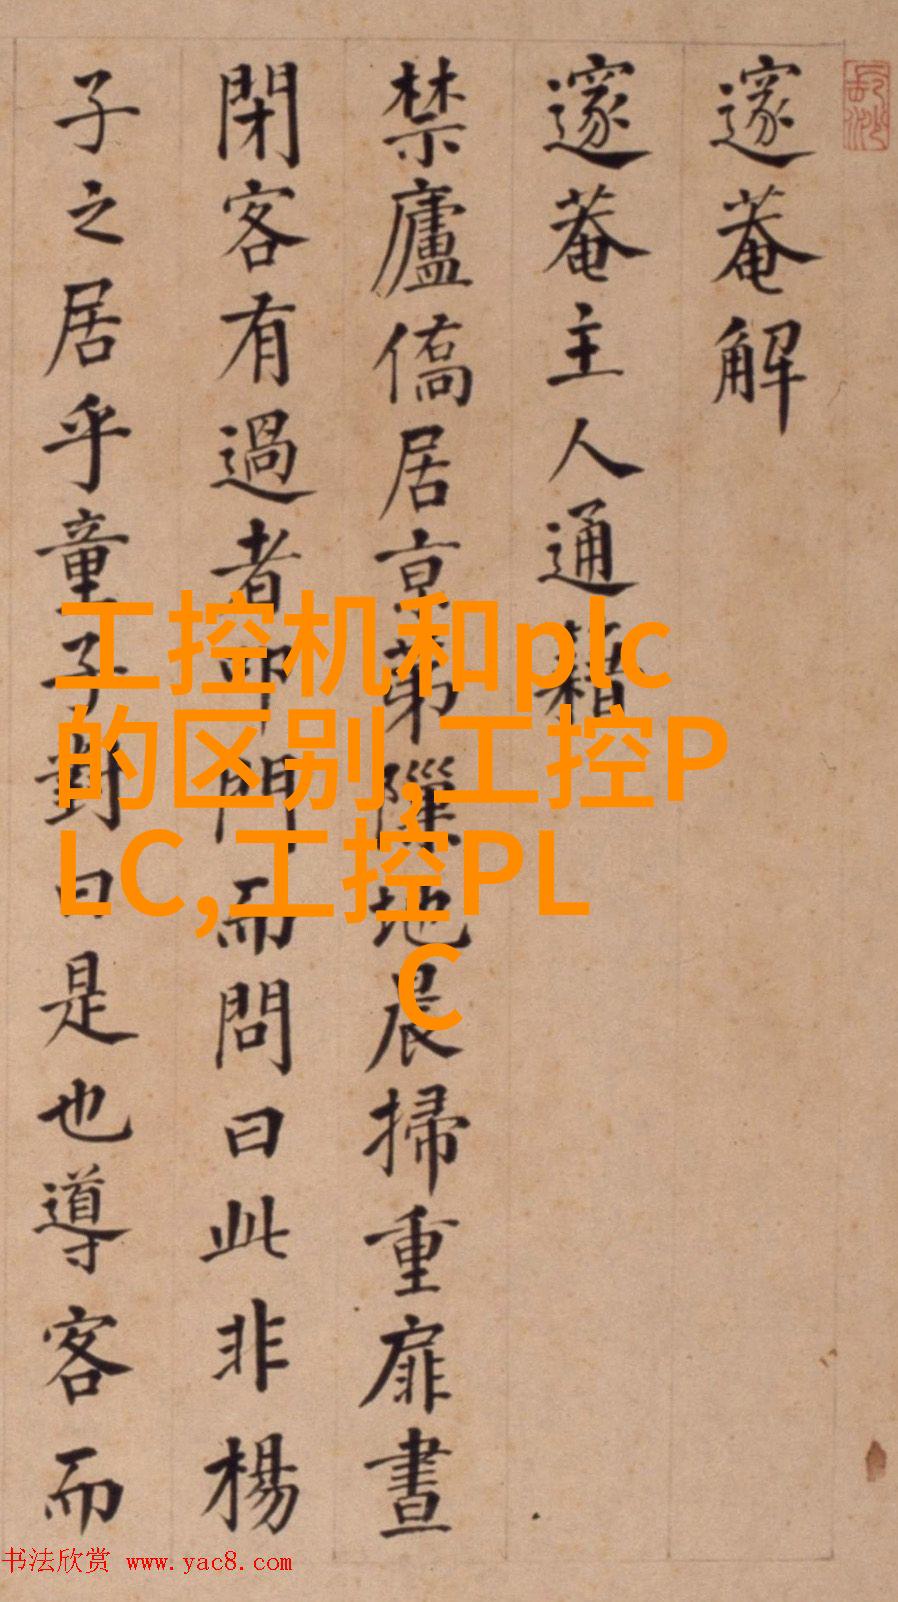 邃菴解
邃菴主人通籍
禁廬僑居京第隟地晨掃重扉晝
閉客有過者叩門而問曰此非楊
子之居乎童子對曰是也導客而
工控机和plc
的区别,工控P
LC,工控PL
C
书法欣赏 www.yac8.com